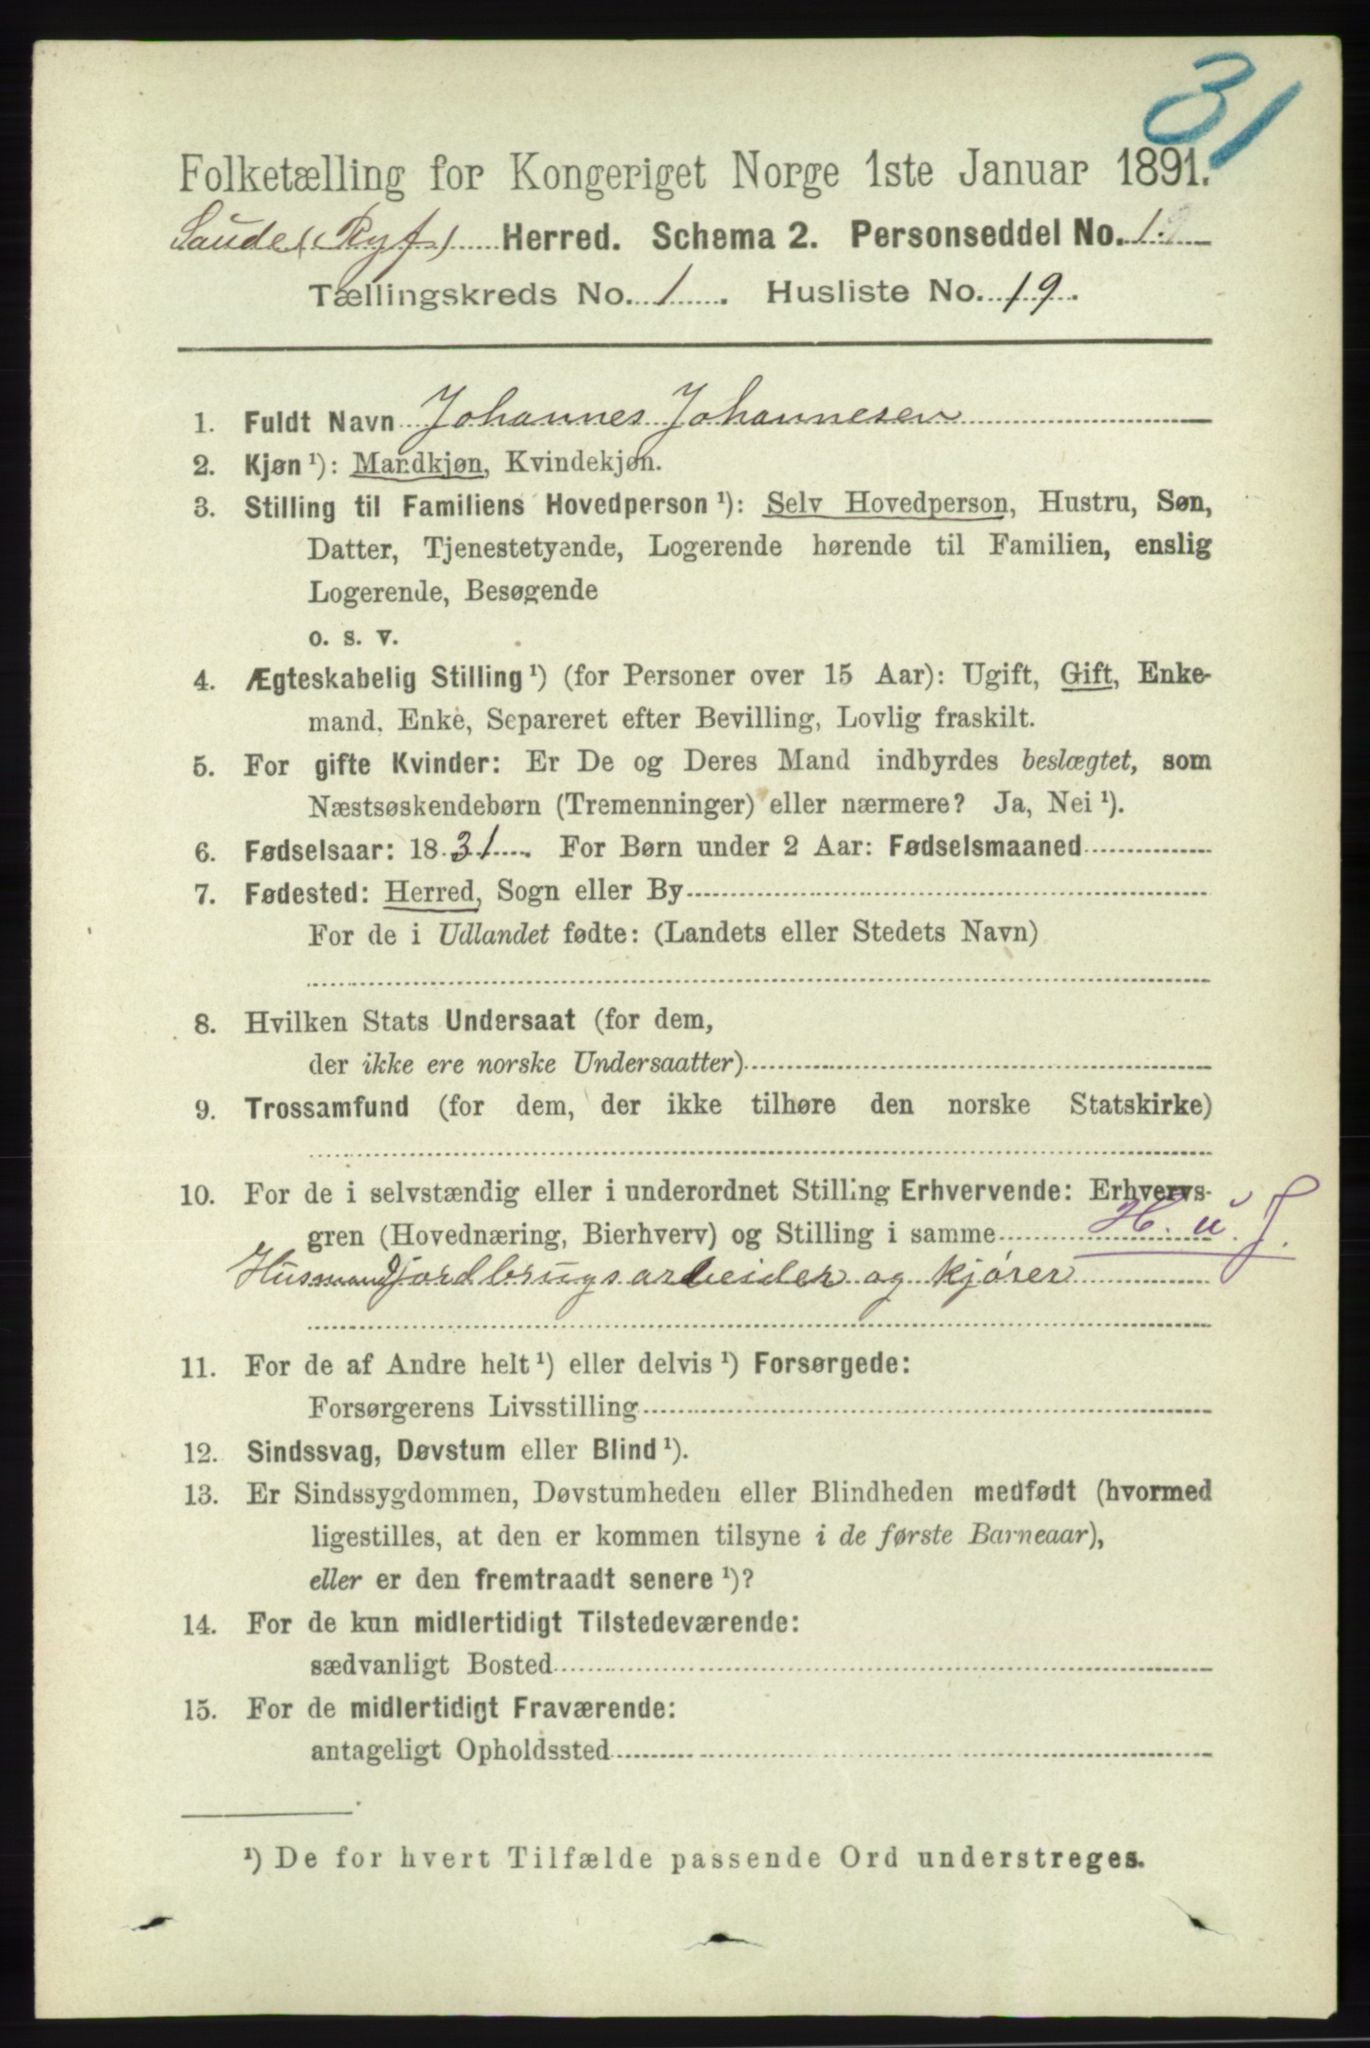 31
Folketælling for Kongeriget Norge 1ste Januar 1891.
Saude (Ryf) Herred. Schema 2. Personseddel No. 1.
Tællingskreds No. 1. Husliste No. 19.
1. Fuldt Navn Johannes Johannesen
2. Kjøn ¹): Mandkjøn, Kvindekjøn.
3. Stilling til Familiens Hovedperson ¹): Selv Hovedperson, Hustru, Søn,
Datter, Tjenestetyende, Logerende hørende til Familien, enslig
Logerende, Besøgende
o. s. v.
4. Ægteskabelig Stilling ¹) (for Personer over 15 Aar): Ugift, Gift, Enke-
mand, Enke, Separeret efter Bevilling, Lovlig fraskilt.
5. For gifte Kvinder: Er De og Deres Mand indbyrdes beslægtet, som
Næstsøskendebørn (Tremenninger) eller nærmere? Ja, Nei ¹).
6. Fødselsaar: 1831. For Børn under 2 Aar: Fødselsmaaned
7. Fødested: Herred, Sogn eller By
For de i Udlandet fødte: (Landets eller Stedets Navn)
8. Hvilken Stats Undersaat (for dem,
der ikke ere norske Undersaatter)
9. Trossamfund (for dem, der ikke tilhøre den norske Statskirke)
10. For de i selvstændig eller i underordnet Stilling Erhvervende: Erhvervs-
gren (Hovednæring, Bierhverv) og Stilling i samme H. u. J.
Husmand jordbrugsarbeider og kjører
11. For de af Andre helt ¹) eller delvis ¹) Forsørgede:
Forsørgerens Livsstilling
12. Sindssvag, Døvstum eller Blind ¹).
13. Er Sindssygdommen, Døvstumheden eller Blindheden medfødt (hvormed
ligestilles, at den er kommen tilsyne i de første Barneaar),
eller er den fremtraadt senere ¹)?
14. For de kun midlertidigt Tilstedeværende:
sædvanligt Bosted
15. For de midlertidigt Fraværende:
antageligt Opholdssted
¹) De for hvert Tilfælde passende Ord understreges.